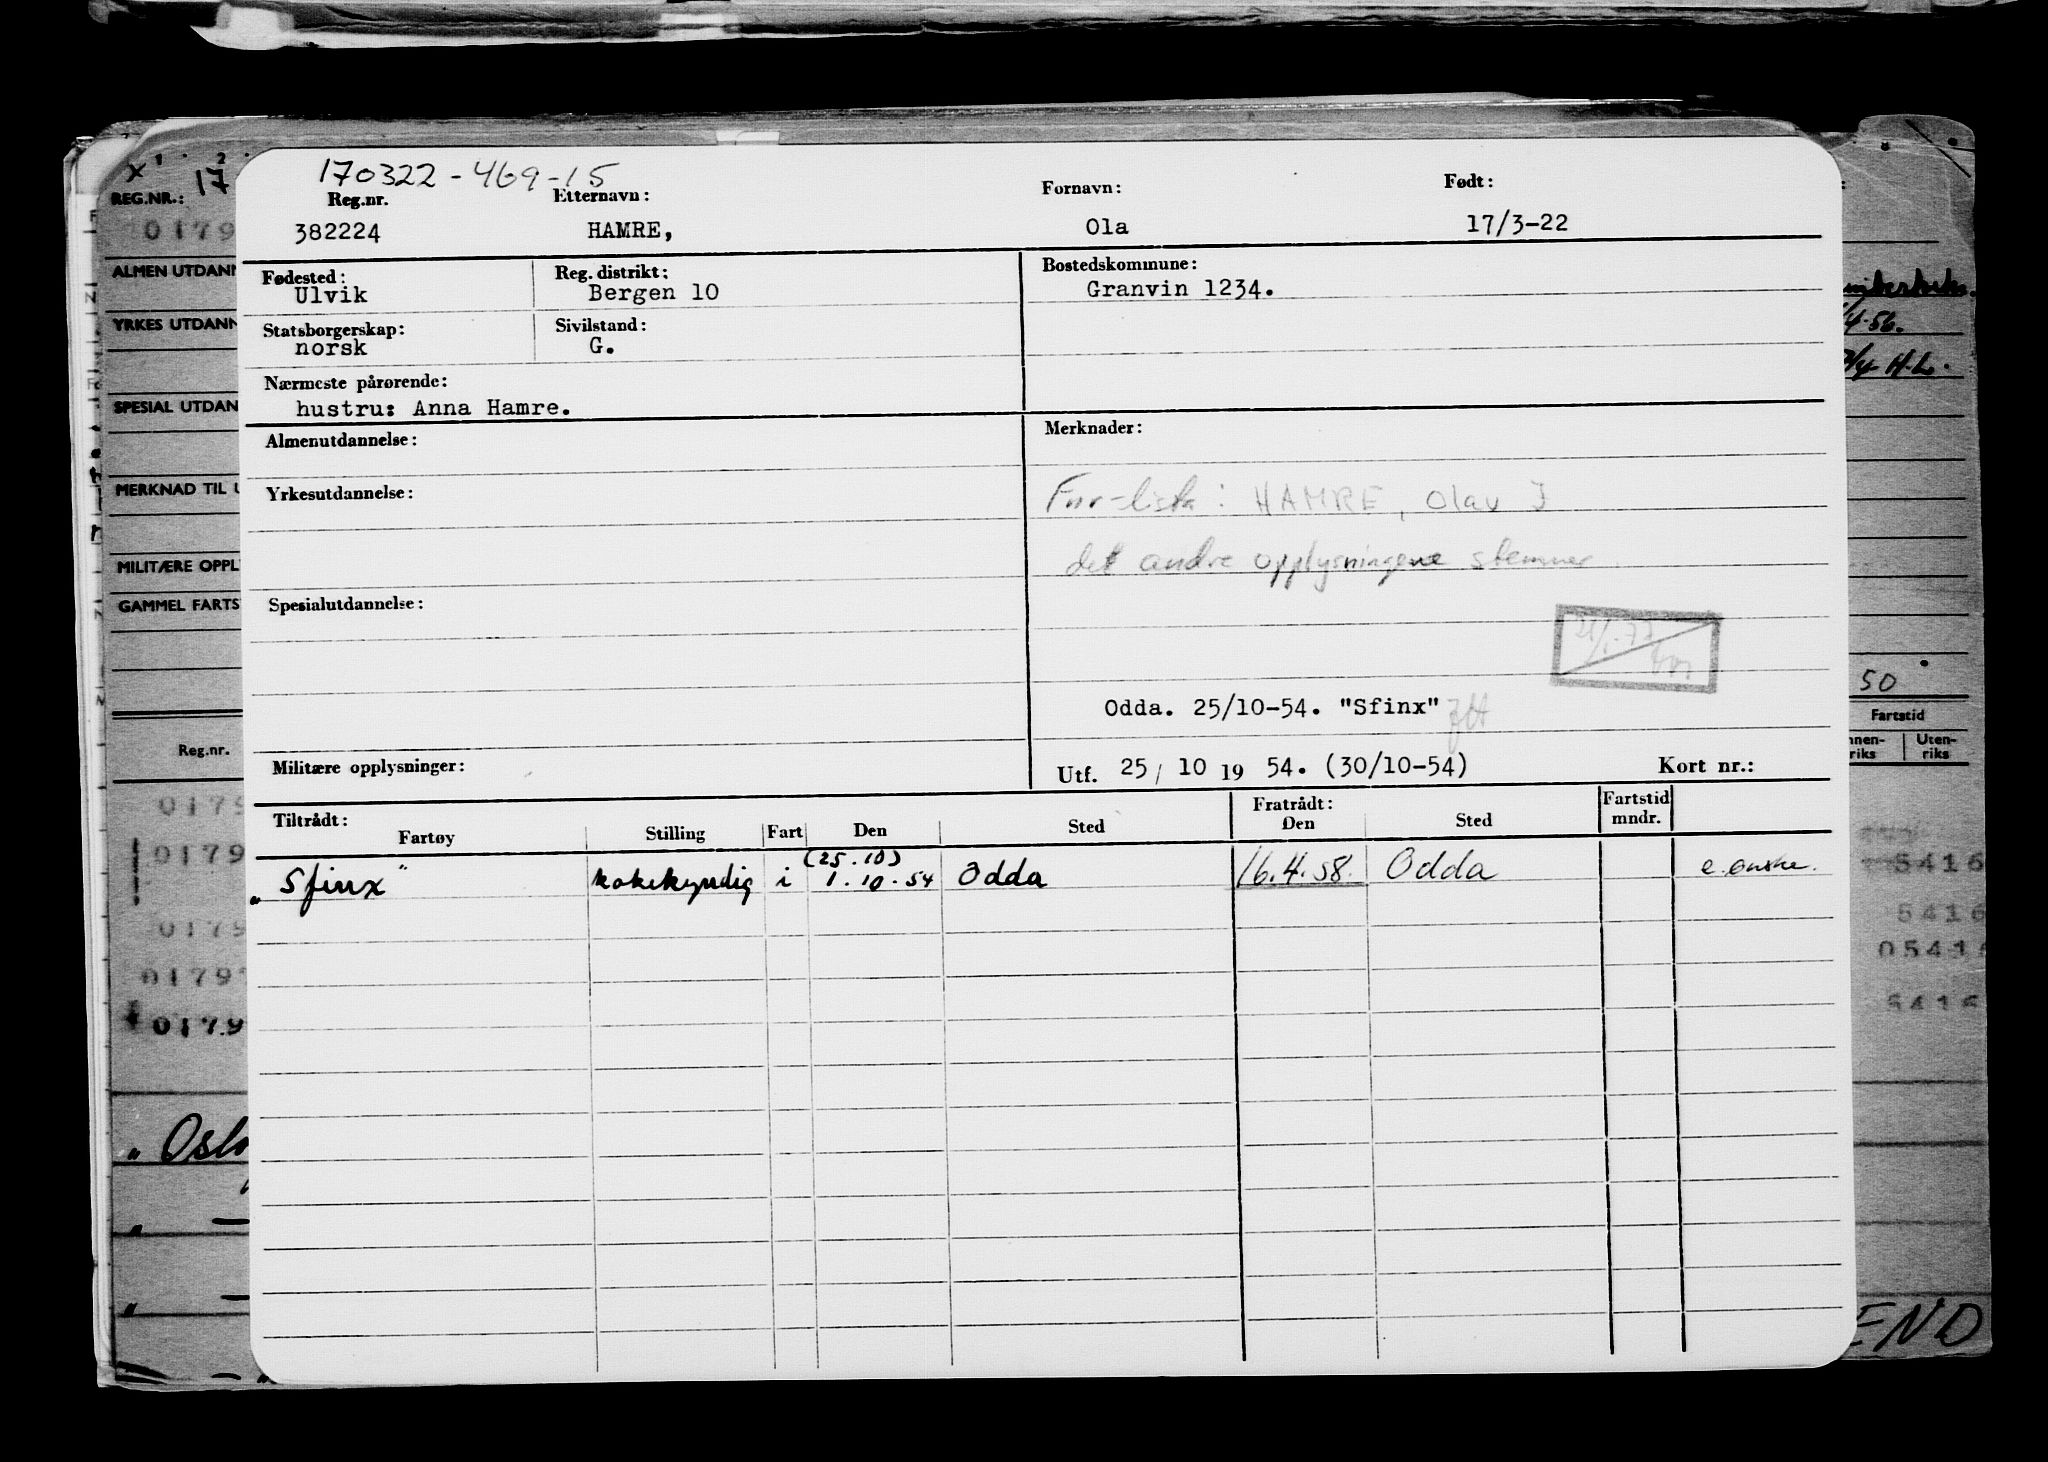 170322-469-15
Reg.nr. Etternavn: Fornavn: Født:
382224 HAMRE, Ola 17/3-22
Fødested: Reg. distrikt: Bostedskommune:
Ulvik Bergen 10 Granvin 1234.
Statsborgerskap: Sivilstand:
norsk G.
Nærmeste pårørende:
hustru: Anna Hamre.
Almenutdannelse: Merknader:
Yrkesutdannelse: Fnr-lista: HAMRE, Olav J
det andre opplysningene stemmer.
Spesialutdannelse:
Odda. 25/10-54. "Sfinx"
Militære opplysninger: Utf. 25 / 10 19 54. (30/10-54) Kort nr.:
Tiltrådt: Fratrådt: Fartstid
Fartøy Stilling Fart Den Sted Den Sted mndr.
(25.10)
"Sfinx" kokekyndig i 1.10.54 Odda 16.4.58. Odda e.ønske.
X 1 2
REG.NR.: 17
0179
ALMEN UTDANN
YRKES UTDANN
SPESIAL UTDAN
MERKNAD TIL U
MILITÆRE OPPL
GAMMEL FARTS
Reg.nr.
0179
0179
0179
0179
0179
" Oslo
/4.56.
/4 H.L.
50
Fartstid
nnen- Uten-
riks riks
5416
5416
05416
5416
END